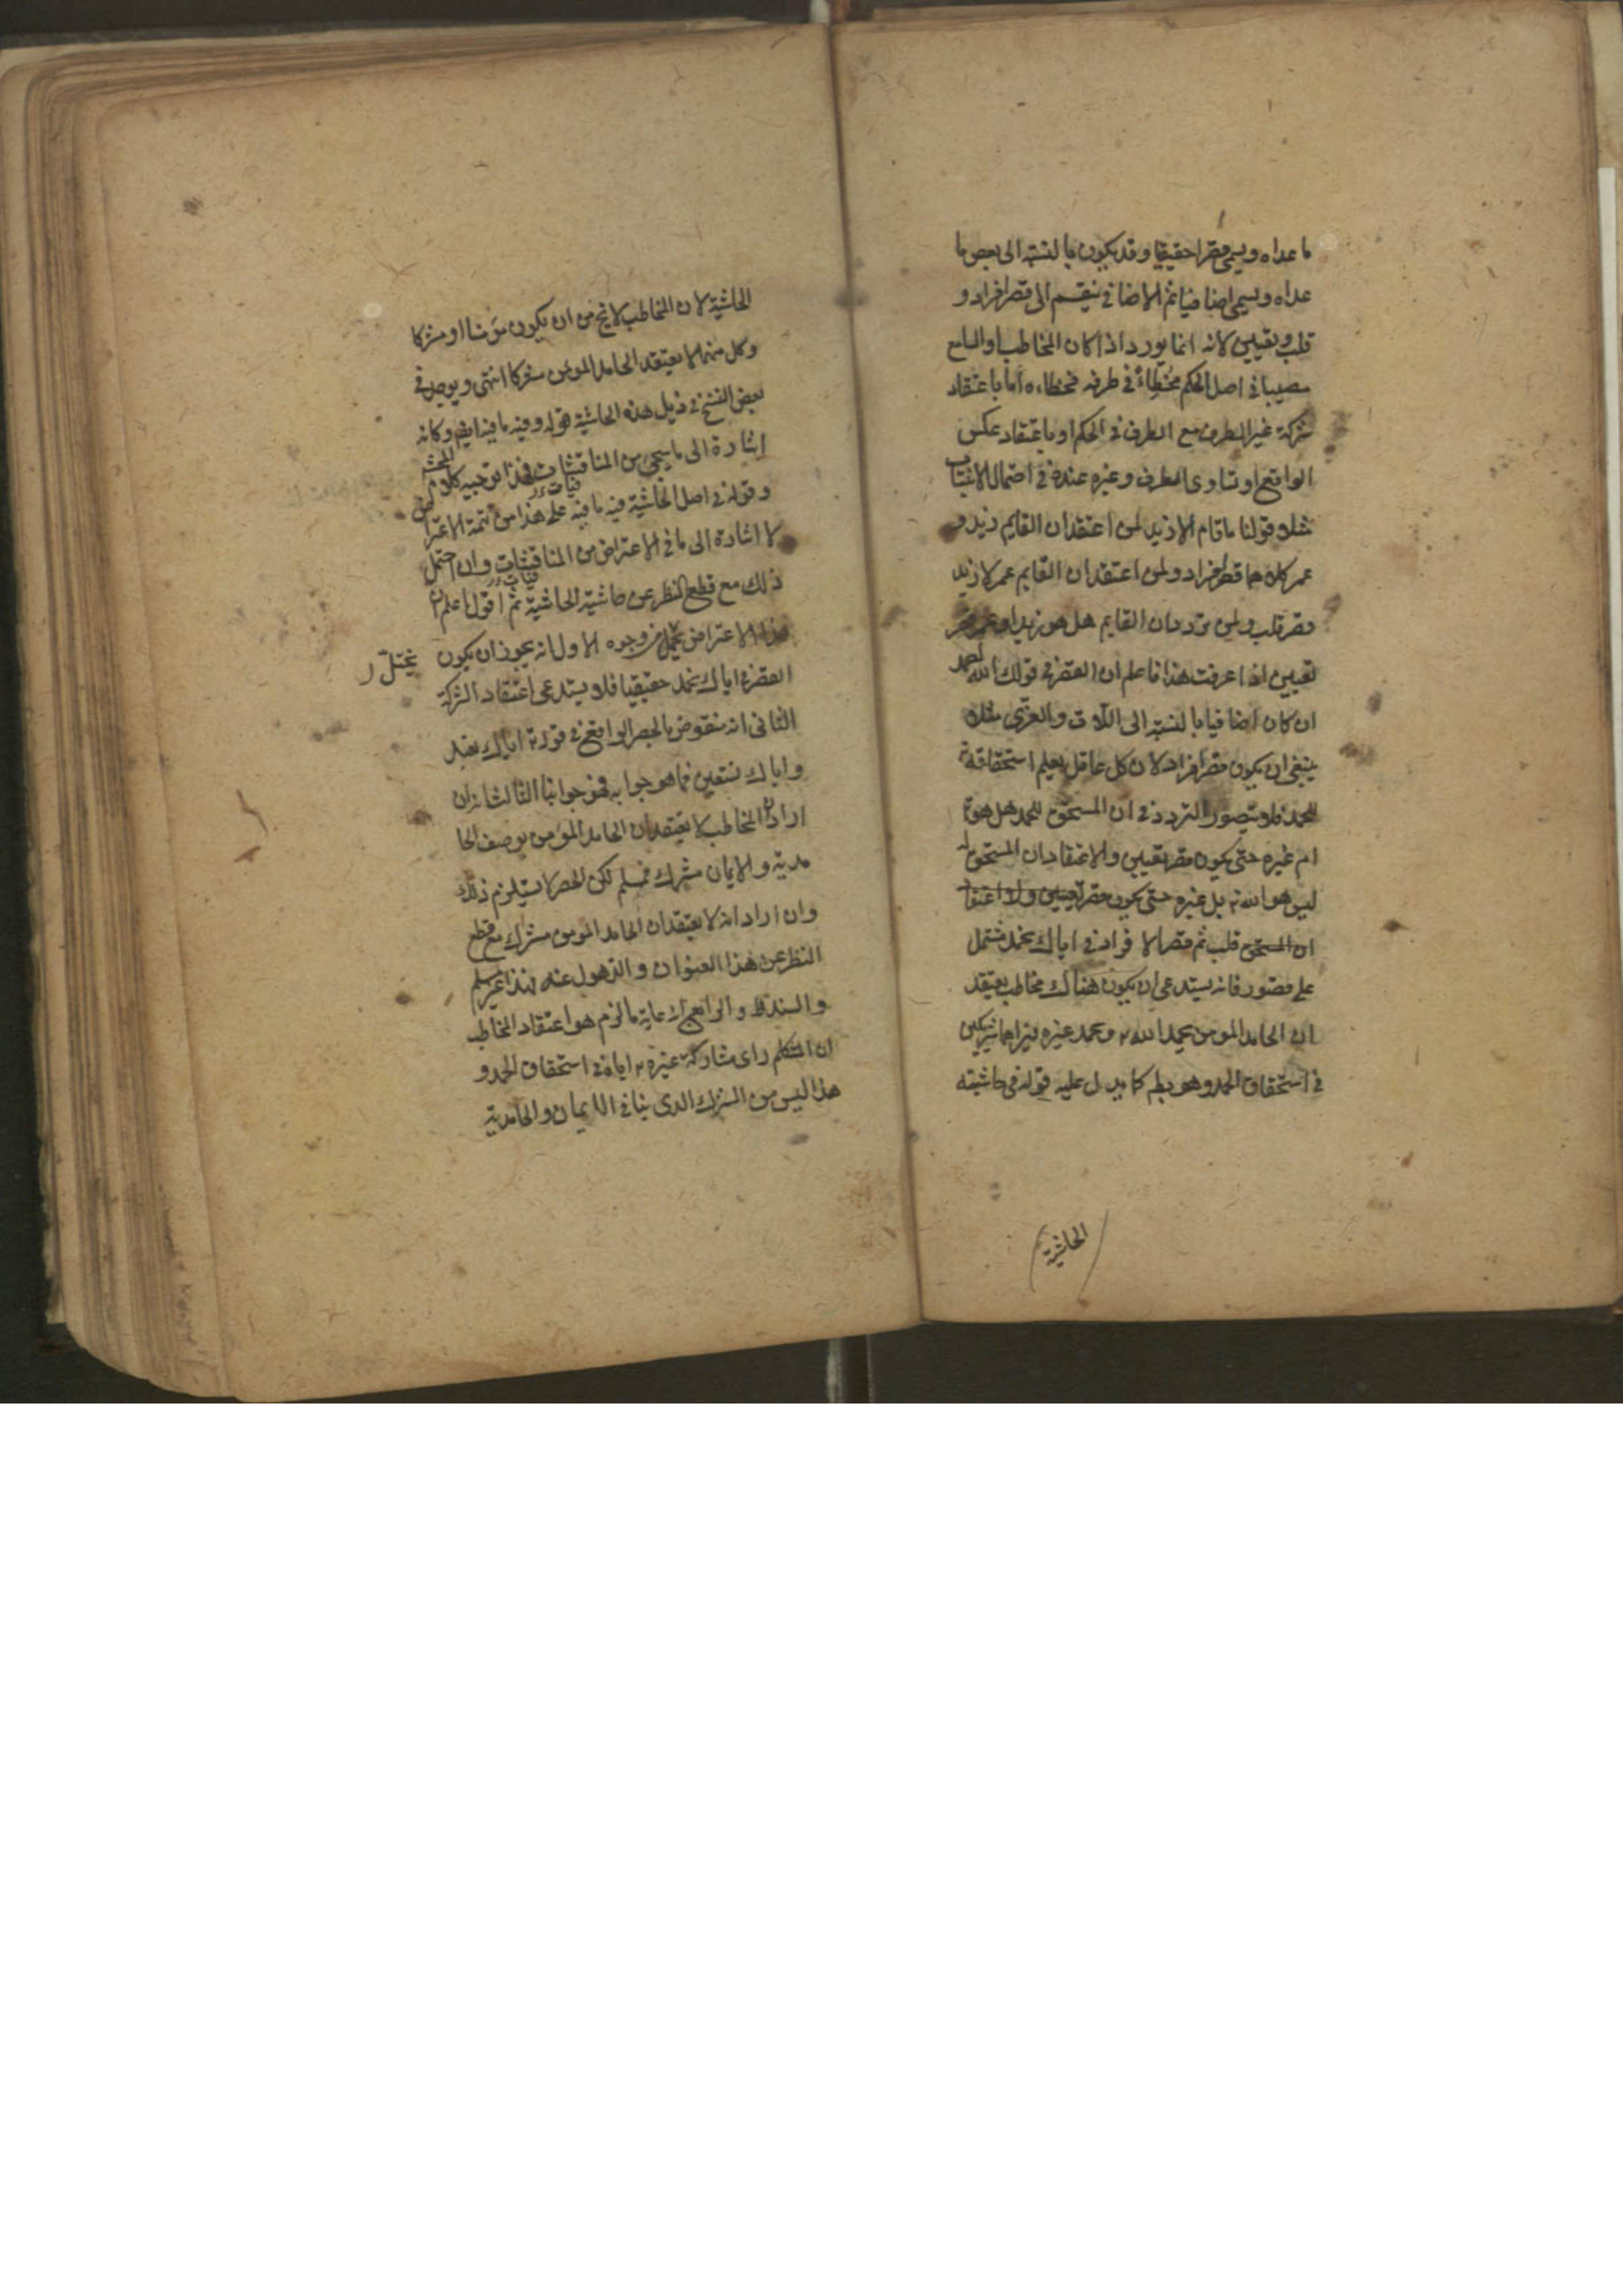 ما عداه ويسمى قصرا حقيقيا وقد يكون بالنسبة الى بعض ما
عداه ويسمى اضافيا ثم الاضافي ينقسم الى قصر افراد و
قلب وتعيين لانه انما يورد اذا كان المخاطب او السامع
مصيبا في اصل الحكم مخطاء في طرفه فخطاءه اما باعتقاد
شركة غير الطرف مع الطرف في الحكم او باعتقاد عكس
الواقع او تساوى الطرف وغيره عنده في احتمال الانتساب
مثلا قولنا ما قام الا زيد لمن اعتقد ان القايم زيد و
عمر كلاهما قصر افراد ولمن اعتقد ان القايم عمر لا زيد
قصر قلب ولمن تردد بان القايم هل هو زيد او عمر قصر
تعيين اذا عرفت هذا فاعلم ان القصر في قولك لله احمد
ان كان اضافيا بالنسبة الى اللات والعزى مثلا
ينبغي ان يكون قصر افراد لان كل عاقل يعلم استحقاقه تع
للحمد فلا يتصور التردد في ان المستحق للحمد هل هو تع
ام غيره حتى يكون قصر تعيين والاعتقاد بان المستحق له
ليس هو الله تع بل غيره حتى يكون قصر تعيين ولا اعتقاد
ان المستحق قلب ثم قصر الافراد في اياك نحمد مشتمل
على قصور فانه يستدعى ان يكون هناك مخاطب يعتقد
ان الحامد المومن يحمد الله تع ويحمد غيره يراهما شريكين
في استحقاق الحمد وهو بط كما يدل عليه قوله في حاشيته
الحاشية
الحاشية لان المخاطب لا يخ من ان يكون مؤمنا او مشركا
وكل منهما لا يعتقد الحامد المومن مشركا انتهى ويوجد في
بعض النسخ في ذيل هذه الحاشية قوله وفيه ما فيه ايضا وكانه
اشارة الى ما سيجئ من المناقشات فهذا توجيه كلام المحشى
وقوله في اصل الحاشية فيه ما فيه على هذا من تتمة الاعتراض
لا اشارة الى ما في الاعتراض من المناقشات وان احتمل
ذلك مع قطع النظر عن حاشية الحاشية ثم اقول اعلم ان
هذا الاعتراض مختل من وجوه الاول انه يجوز ان يكون
يختل
القصر في اياك نحمد حقيقيا فلا يستدعى اعتقاد الشركة
الثانى انه منقوض بالحصر الواقع في قوله تع اياك نعبد
واياك نستعين فما هو جوابه فهو جوابنا الثالث انه ان
اراد ان المخاطب لا يعتقد ان الحامد المؤمن بوصف الحا
مدية والايمان مشرك فمسلم لكن الحصر لا يستلزم ذلك
وان اراد انه لا يعتقد ان الحامد المومن مشرك مع قطع
النظر عن هذا العنوان والذهول عنه فهذا غير مسلم
والسند ظ والواقع ان غاية ما لزم هو اعتقاد المخاطب
ان المتكلم راى مشاركة غيره تع اياه في استحقاق الحمد و
هذا ليس من الشرك الذى ينافي الايمان والحامدية